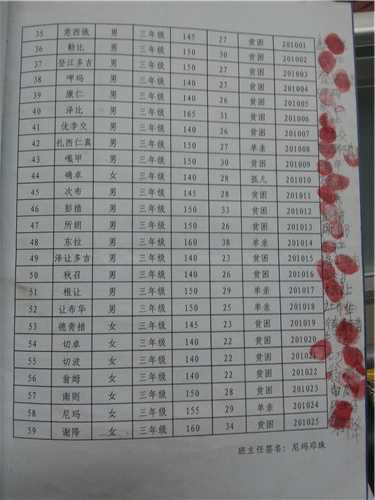 35 意西俄 男 三年级 145 27 贫困 201001
36 勒比 男 三年级 150 30 贫困 201002
37 登江多吉 男 三年级 150 26 贫困 201003
38 呷玛 男 三年级 150 30 贫困 201004
39 康仁 男 三年级 140 26 贫困 201005
40 泽比 男 三年级 165 31 贫困 201006
41 优李交 男 三年级 140 26 贫困 201007
42 扎西仁真 男 三年级 150 30 单亲 201008
43 嘎甲 男 三年级 150 30 贫困 201009
44 确卓 女 三年级 140 28 孤儿 201010
45 次布 男 三年级 145 28 贫困 201011
46 彭措 男 三年级 150 33 贫困 201012
47 所朗 男 三年级 150 28 贫困 201013
48 东拉 男 三年级 160 38 单亲 201014
49 泽让多吉 男 三年级 140 26 贫困 201015
50 秋召 男 三年级 140 26 贫困 201016
51 根让 男 三年级 150 29 单亲 201017
52 让布华 男 三年级 150 25 单亲 201018
53 德青措 女 三年级 145 23 贫困 201019
54 切卓 女 三年级 140 22 贫困
55 切波 女 三年级 140 22 贫困
56 翁姆 女 三年级 140 22 贫困 201022
57 南则 女 三年级 150 28 贫困 201023
58 尼玛 女 三年级 155 29 单亲 201024
59 谢降 女 三年级 160 34 贫困 201025
班主任签名：尼玛邓珠